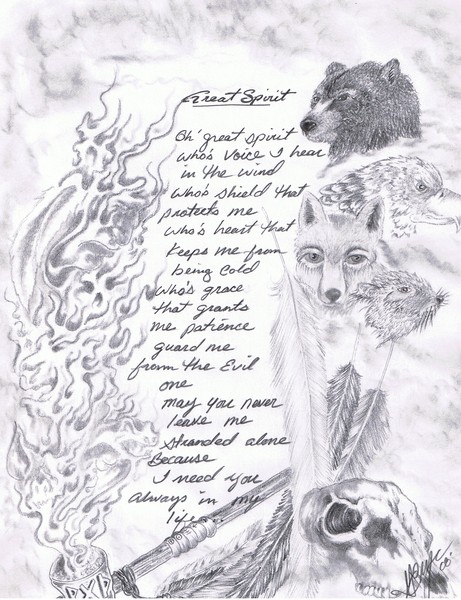 Great Spirit
Oh' great spirit
who's voice I hear
in the wind
who's shield that
protects me
who's heart that
keeps me from
being cold
who's grace
that grants
me patience
guard me
from the Evil
one
may you never
leave me
stranded alone
Because
I need you
always in my
life...